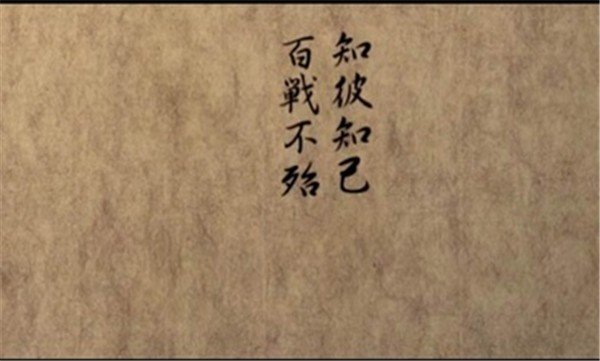 知彼知己
百戦不殆